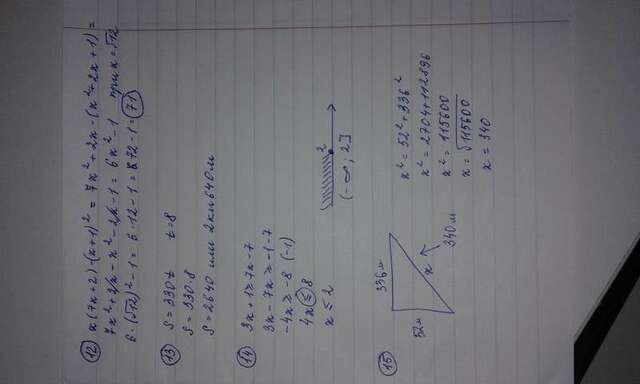 12) x(7x+2)-(x+1)² = 7x²+2x-(x²+2x+1)=
7x²+2x-x²-2x-1= 6x²-1 при x=√12
6·(√12)²-1= 6·12-1= 72-1=71
13) S=330·t t=8
S=330·8
S=2640 или 2км640м
14) 3x+1≥7x-7
3x-7x≥-1-7
-4x≥-8 (-1)
4x≤8
x≤2
2
(-∞; 2]
15) 336м
52м
x
340м
x²=52²+336²
x²=2704+112896
x²=115600
x=√115600
x=340